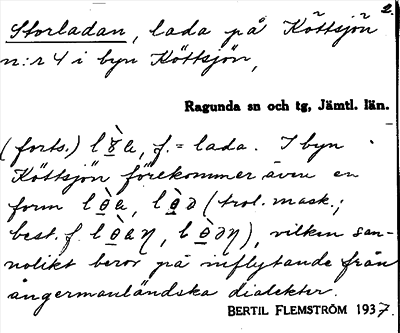 2.
Storladan, lada på Köttsjön
n:r 4 i byn Köttsjön,
Ragunda sn och tg, Jämtl. län.
(forts.) f. = lada. I byn
Köttsjön förekommer även en
form (trol. mask.;
best. f. ), vilken san-
nolikt beror på inflytande från
ångermanländska dialekter.
BERTIL FLEMSTRÖM 1937.